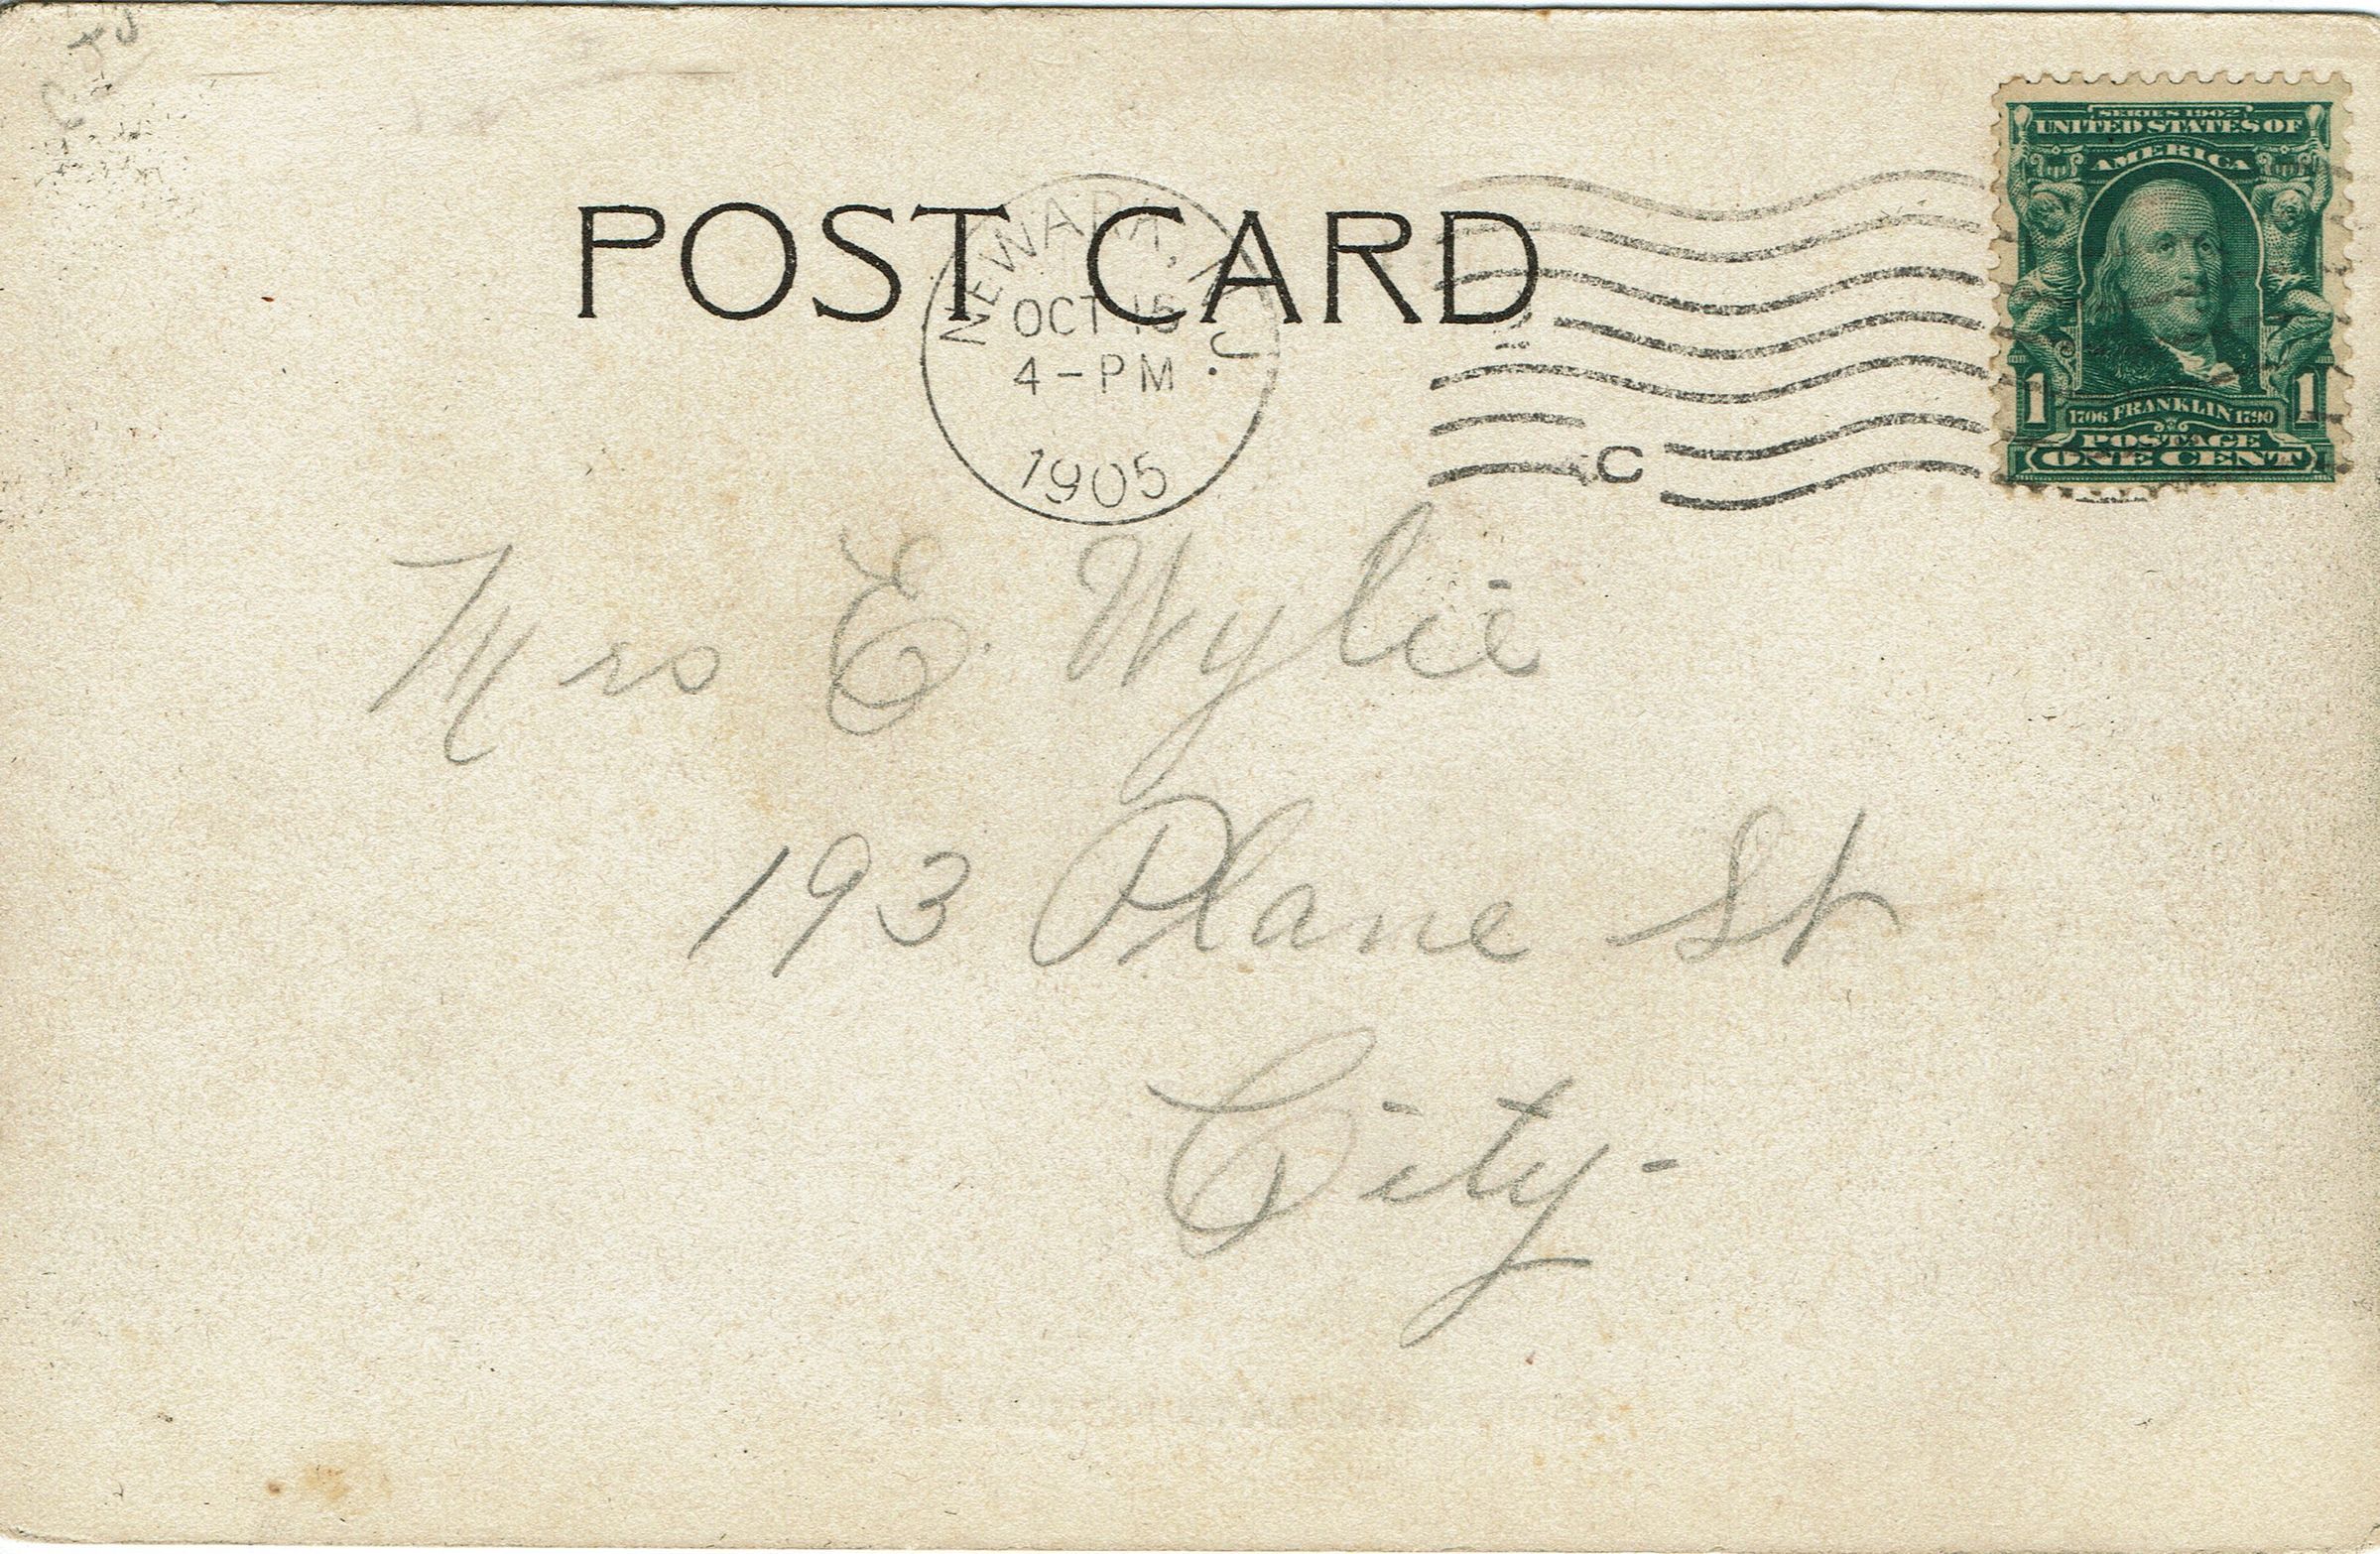 POST CARD
NEWARK, N.J.
OCT 15
4-PM
1905
C
SERIES 1902
UNITED STATES OF
AMERICA
1 1706 FRANKLIN 1790 1
POSTAGE
ONE CENT
Mrs E. Wylie
193 Plane St
City-